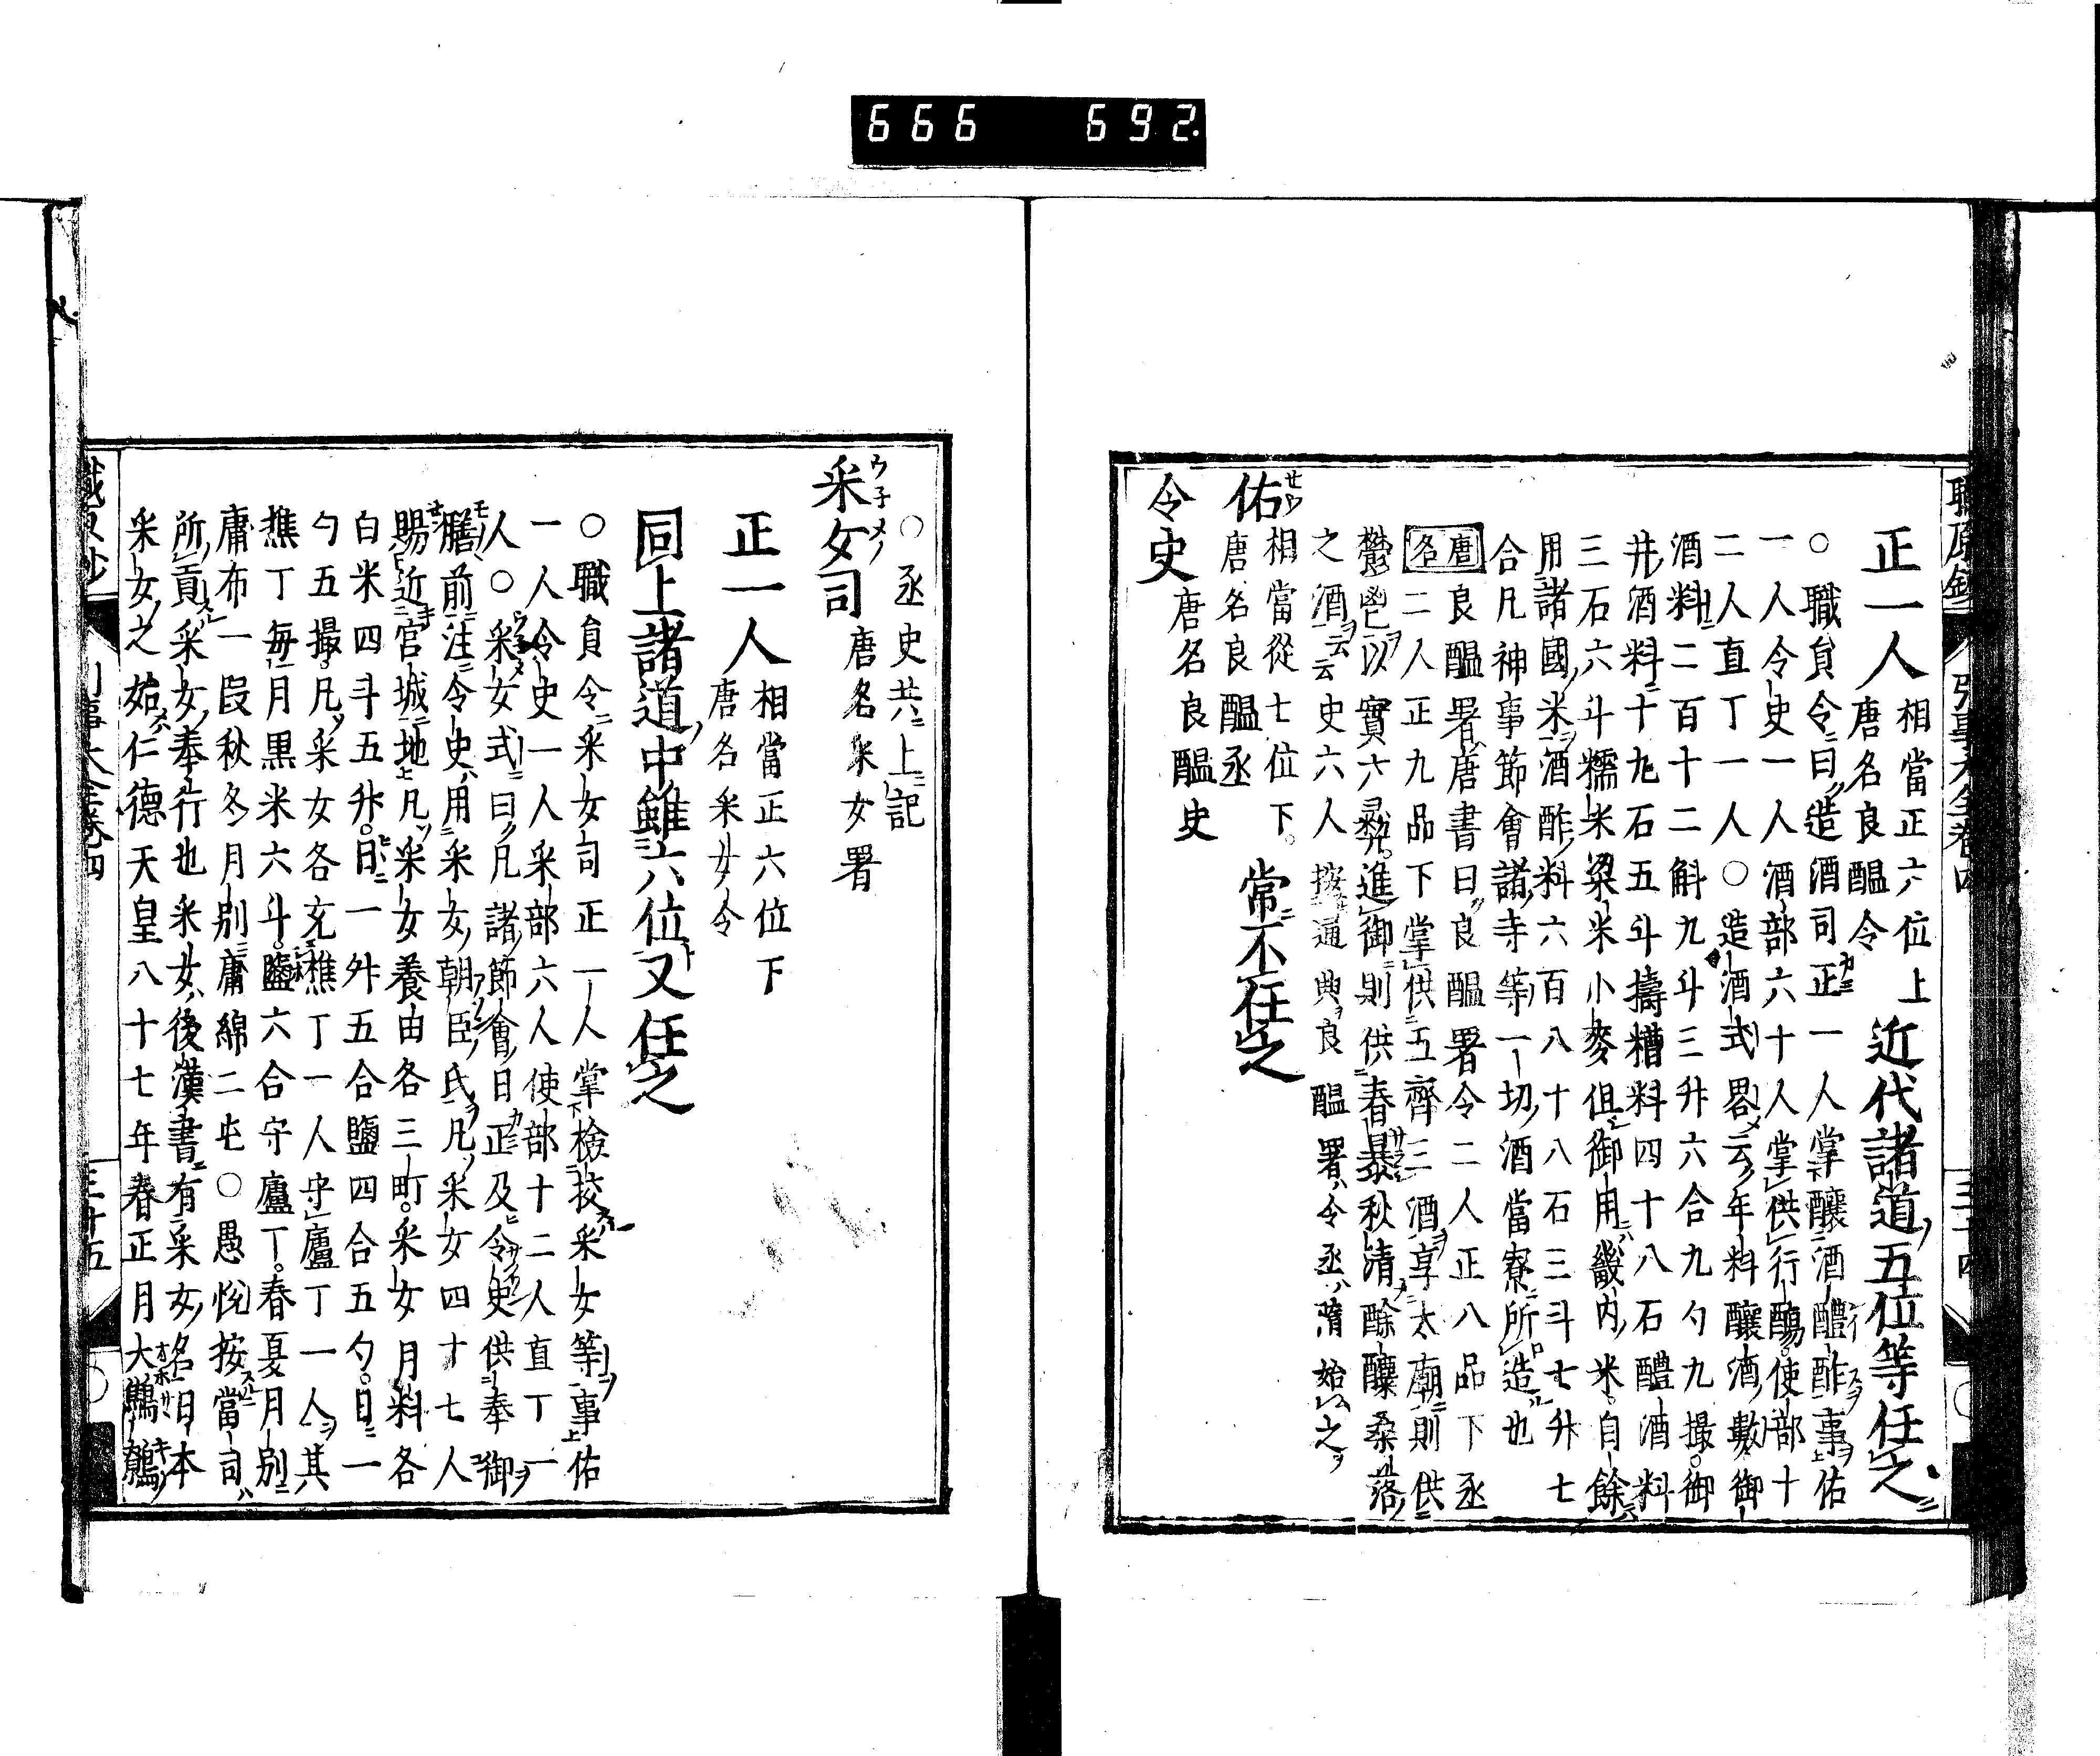 666 692.
正一人 相當正六位上 唐名良醞令 近代諸道五位等任之
○職員令曰造酒司正一人掌釀酒醴酢事佑
一人令史一人酒部六十人掌供行觴使部十
二人直丁一人○造酒式畧云年料釀酒數御
酒料二百十二斛九斗三升六合九勺九撮御
井酒料十九石五斗擣糟料四十八石醴酒料
三石六斗糯米粱米小麥但御用畿內米自餘
用諸國米酒酢料六百八十八石三斗七升七
合凡神事節會諸寺等一切酒當寮所造也
唐名 良醞署唐書曰良醞署令二人正八品下丞
二人正九品下掌供五齊三酒享太廟則供
鬱鬯以實六彝進御則供春暴秋清酴釀桑落
之酒云云史六人按通典良醞署令丞隋始之
佑 相當從七位下 唐名良醞丞 常不任之
令史 唐名良醞史
○丞史共上記
采女司 唐名采女署
正一人 相當正六位下 唐名采女令
同上諸道中雖六位又任之
○職員令采女司正一人掌檢挍采女等事佑
一人令史一人采部六人使部十二人直丁一
人○采女式曰凡諸節會日正及令史供奉御
膳前注令史用采女朝臣氏凡采女四十七人
賜近宮城地凡采女養田各三町采女月料各
白米四斗五升日一升五合鹽四合五勺日一
勺五撮凡采女各充樵丁一人守廬丁一人其
樵丁每月黑米六斗鹽六合守廬丁春夏月別
庸布一段秋冬月別庸綿二屯○愚按當司
所貢采女奉行也采女後漢書有采女名日本
采女之始仁德天皇八十七年春正月大鷦鷯
三十五